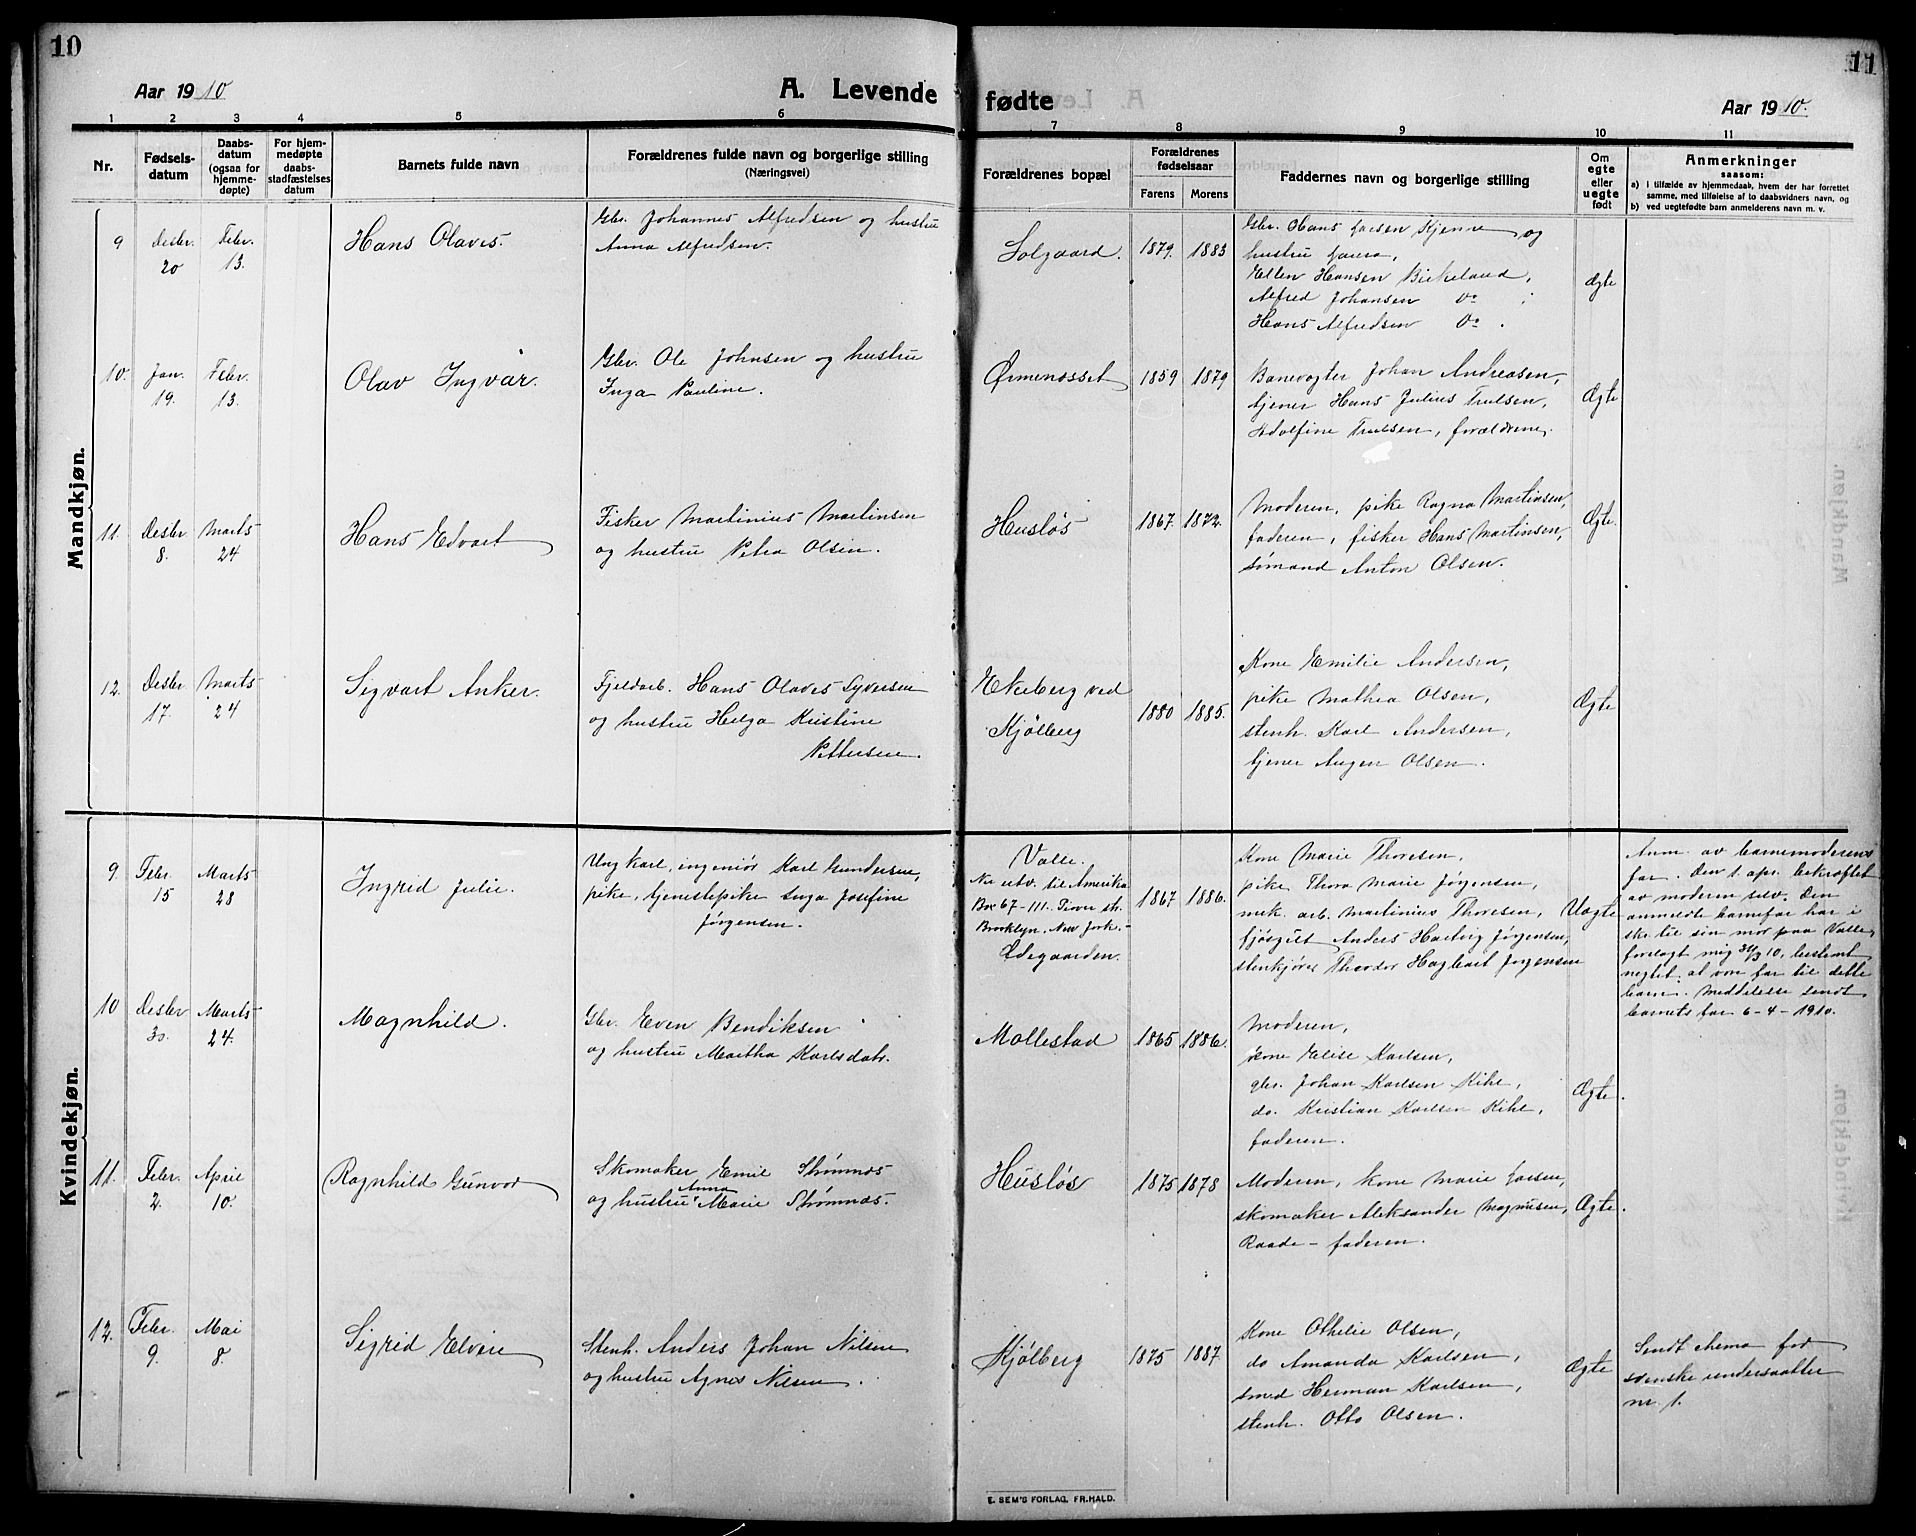 10
11
Aar 1910
A. Levende fødte
Aar 1910.
1 2 3 4 5 6 7 8 9 10 11
Nr.
Fødsels-
datum
Daabs-
datum
(ogsaa for
hjemme-
døpte)
For hjem-
medøpte
daabs-
stadfæstelses
datum
Barnets fulde navn
Forældrenes fulde navn og borgerlige stilling
(Næringsvei)
Forældrenes bopæl
Forældrenes
fødselsaar
Farens Morens
Faddernes navn og borgerlige stilling
Om
egte
eller
uegte
født
Anmerkninger
saasom:
a) i tilfælde av hjemmedaab, hvem der har forrettet
samme, med tilføielse af to daabsvidners navn, og
b) ved uegtefødte barn anmelderens navn m. v.
Mandkjøn.
9
Desbr.
20
Febr.
13.
Hans Olaves.
Gbr. Johannes Alfredsen og hustru
Anna Alfredsen.
Solgaard.
1879. 1883
Gbr. Hans Larsen Kjenne og
hustru Laura,
Ellen Hansen Birkeland,
Alfred Johansen Do ;
Hans Alfredsen Do .
Ægte
10.
Jan.
19.
Febr.
13.
Olav Ingvar.
Gbr. Ole Johnsen og hustru
Inga Pauline.
Ørmenosset
1859 1879
Banevogter Johan Andreasen,
tjener Hans Julius Trulsen,
Adolfine Trulsen, forældrene.
Ægte
11.
Desbr.
8.
Marts
24
Hans Edvart
Fisker Martinius Martinsen
og hustru Petra Olsen.
Husløs
1867. 1872.
Moderen, pike Ragna Martinsen,
faderen, fisker Hans Martinsen,
sømand Anton Olsen.
Ægte.
12.
Desbr
17.
Marts
24
Sigvart Anker.
Fjeldarb. Hans Olaves Syversen
og hustru Helga Kristine
Pettersen.
Ekeberg ved
Kjølberg
1880 1885.
Kone Emilie Andersen,
pike Mathea Olsen,
stenh. Karl Andersen,
tjener Augen Olsen.
Ægte
Kvindekjøn.
9.
Febr
15
Marts
28
Ingrid Julie.
Ungkarl, ingeniør Karl Gundersen,
pike, tjenestepike Inga Josefine
Jørgensen.
Valle.
Nu utv. til Amerika
Box 67 - 111. Tiover str.
Brooklyn. New Jork. -
Ødegaarden.
1867 1886.
Kone Marie Thoresen,
pike Thora Marie Jørgensen,
mek. arb. Martinius Thoresen,
fjøsgut Anders Hartvig Jørgensen,
stenkjører Theodor Hagbart Jørgensen
Uægte
Anm. av barnemoderens
far. Den 1. apr. bekræftet
av moderen selv. Den
anmeldte barnefar har i
skr. til sin mor paa Valle,
forelagt mig 31/3 10, bestemt
negtet at være far til dette
barn. Meddelelse sendt
barnets far 6-4-1910.
10
Desbr
30.
Marts
24.
Magnhild.
Gbr. Even Bendiksen
og hustru Martha Karlsdatr.
Mollestad
1865 1886.
Moderen,
kone Elise Karlsen,
gbr. Johan Karlsen Kihl,
do. Kristian Karlsen Kihl,
faderen.
Ægte.
11.
Febr.
2.
April
10.
Ragnhild Gunvor
Skomaker Emil Strømnæs
og hustru Anna Marie Strømnæs.
Husløs
1875 1878
Moderen, kone Marie Larsen,
skomaker Aleksander Magnusen,
Raade - faderen.
Ægte.
12.
Febr.
9.
Mai
8.
Sigrid Elvire
Stenh. Anders Johan Nilsen
og hustru Agnes Nilsen.
Kjølberg
1875 1887.
Kone Othelie Olsen,
do Amanda Karlsen,
smed Herman Karlsen,
stenh. Otto Olsen.
Ægte
Sendt skema for
svenske undersaatter
nr. 1.
E. SEM'S FORLAG, FR.HALD.